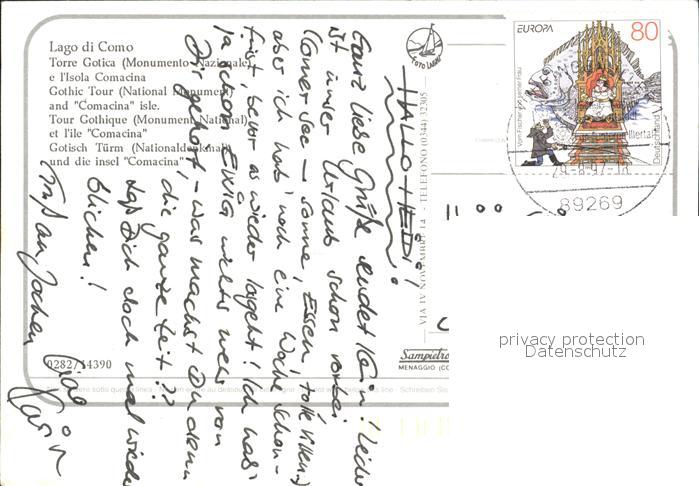 Lago di Como
Torre Gotica (Monumento Nazionale)
e l'Isola Comacina
Gothic Tour (National Monument)
and "Comacina" isle.
Tour Gothique (Monument National)
et l'ile "Comacina"
Gotisch Türm (Nationaldenkmal)
und die insel "Comacina"
0282/14390
FOTO LARIO
VIA IV NOVEMBRE 14 - TELEFONO (0344) 32305
Sampietro
MENAGGIO (CO
EUROPA
80
Von Fischer und seiner Frau
Deutschland
29.-8.97-18
89269
privacy protection
Datenschutz
HALLO HEIDI!
Ganz liebe Grüße sendet Karin! Leider
ist unser Urlaub schon vorbei
(Comer See – Sonne, Essen, tolle Villen)
aber ich hab' noch eine Woche Schon-
frist, bevor es wieder losgeht! Ich hab'
ja schon Ewig nichts mehr von
Dir gehört, – was machst Du denn
die ganze Zeit??
Laß Dich doch mal wieder
blicken!
Gruß an Jochen
Ciao
Karin